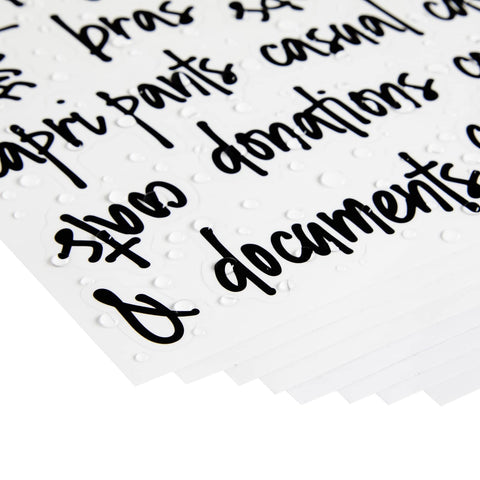 bras
capri pants casual
coats donations
& documents